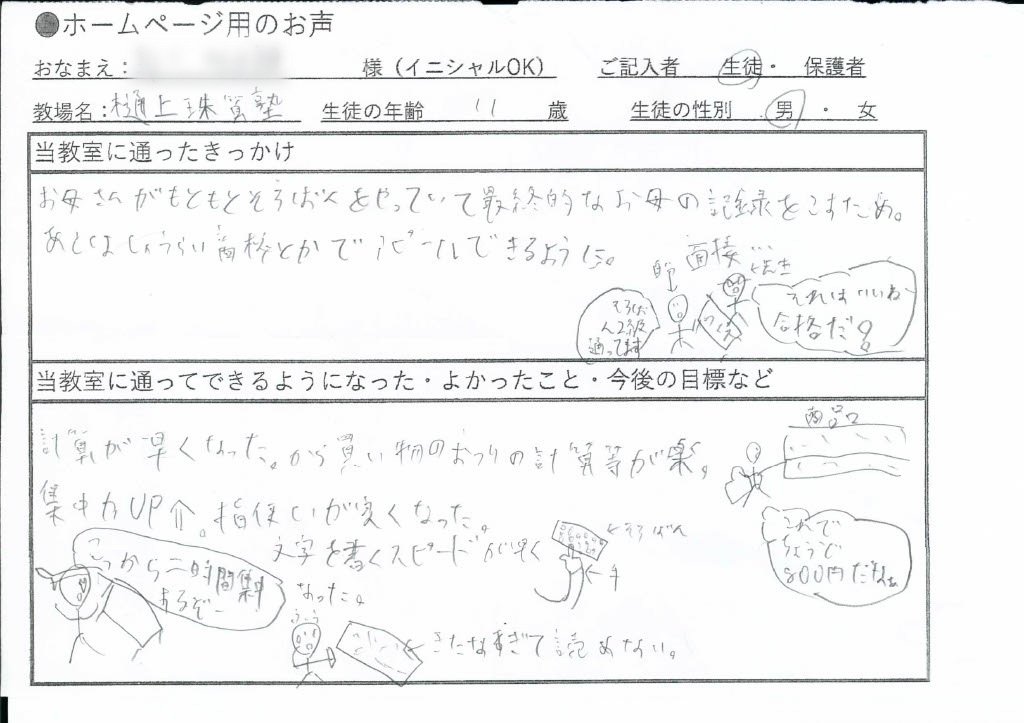 ●ホームページ用のお声
おなまえ： 様（イニシャルOK） ご記入者 生徒・ 保護者
教場名：樋上珠算塾 生徒の年齢 11 歳 生徒の性別 男 ・ 女
当教室に通ったきっかけ
お母さんがもともとそろばんをやっていて最終的なお母の記録をこすため。
あとはしょうらい面接とかでアピールできるように。
面接…
先生
そろば
ん2級
通ってます
それはいいね
合格だ!
当教室に通ってできるようになった・よかったこと・今後の目標など
計算が早くなった。から買い物のおつりの計算等が楽。
商品
集中力UP↑。指使いが良くなった。
文字を書くスピードが早く
なった。
←そろばん
←手
これで
ちょうど
800円だなぁ
こっから一時間集中
するぞー
←きたなすぎて読めない。